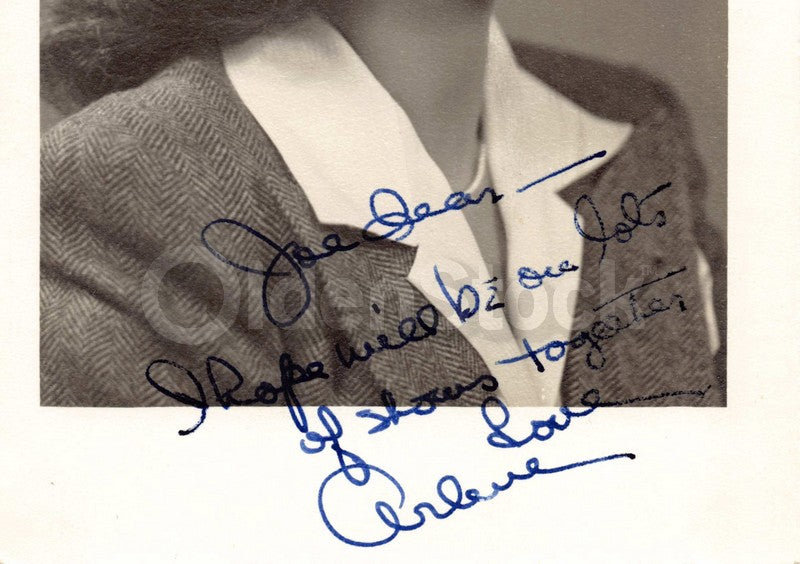 Joe dear —
I hope will be on lots
of shows together
Love
Arlene
OldenStock